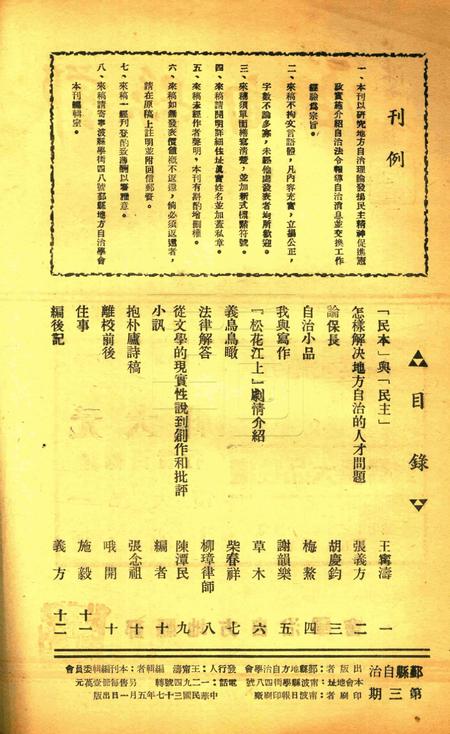 刊例
一、本刊以研究地方自治理論發揚民主精神促進憲
政實施介紹自治法令報導自治消息並交換工作
經驗爲宗旨。
二、來稿不拘文言語體，凡內容充實，立場公正，
字數不論多寡，未經他處發表者均所歡迎。
三、來稿須單面繕寫清楚，並加新式標點符號。
四、來稿請開明詳細住址眞實姓名並加蓋私章。
五、來稿未經作者聲明，本刊有斟酌增刪權。
六、來稿如無發表價值概不返還，倘必須返還者，
請在原稿上註明並附回信郵資。
七、來稿一經刊登酌致薄酬以署雅意。
八、來稿請寄寧波縣學街四八號鄞縣地方自治學會
本刊編輯室。
目錄
「民本」與「民主」 王寗濤 一
怎樣解決地方自治的人才問題 張義方 二
論保長 胡慶鈞 三
自治小品 梅鰲 四
我與寫作 謝韻樂 五
『松花江上』劇情介紹 草木 六
義烏鳥瞰 柴春祥 七
法律解答 柳璋律師 八
從文學的現實性說到創作和批評 陳潭民 九
小訊 編者 十
抱朴廬詩稿 張念祖 十
離校前後 哦開 十
住事 施毅 十一
編後記 義方 十二
鄞縣自治
第三期
本出版者：鄞縣地方自治學會
會地址：寧波縣學街四八號
印刷者：寧波日報印刷廠
發行人：王寗濤
電話：一二九四號轉
編輯者：本刊編輯委員會
另售每册壹萬元
中華民國三十七年五月一日出版